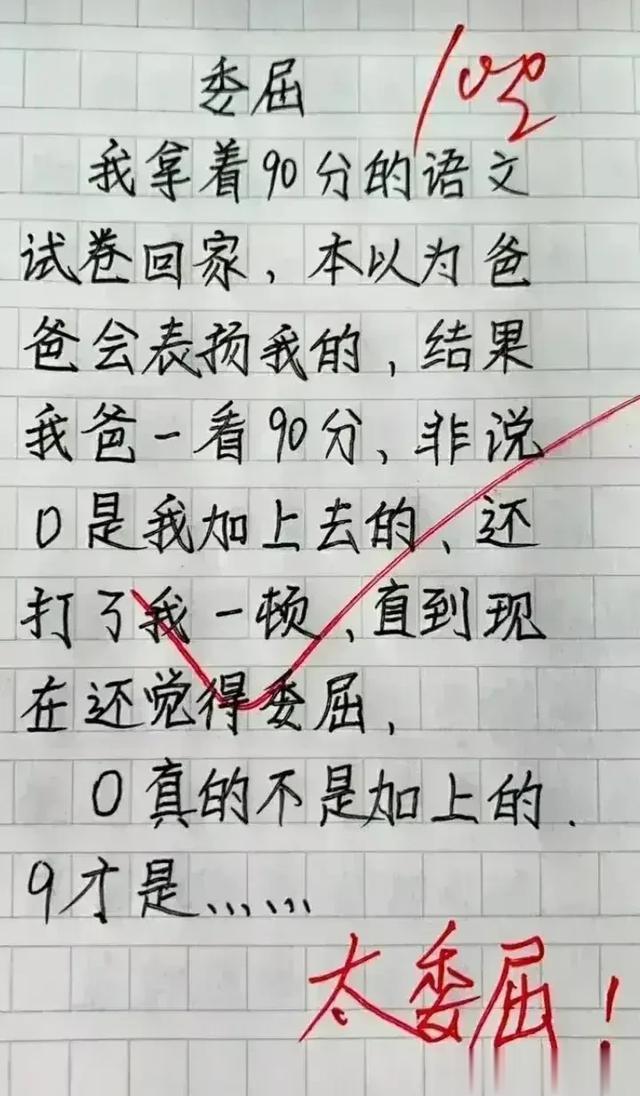 委屈 100
我拿着90分的语文
试卷回家，本以为爸
爸会表扬我的，结果
我爸一看90分、非说
0是我加上去的、还
打了我一顿、直到现
在还觉得委屈，
0真的不是加上的.
9才是……
太委屈！